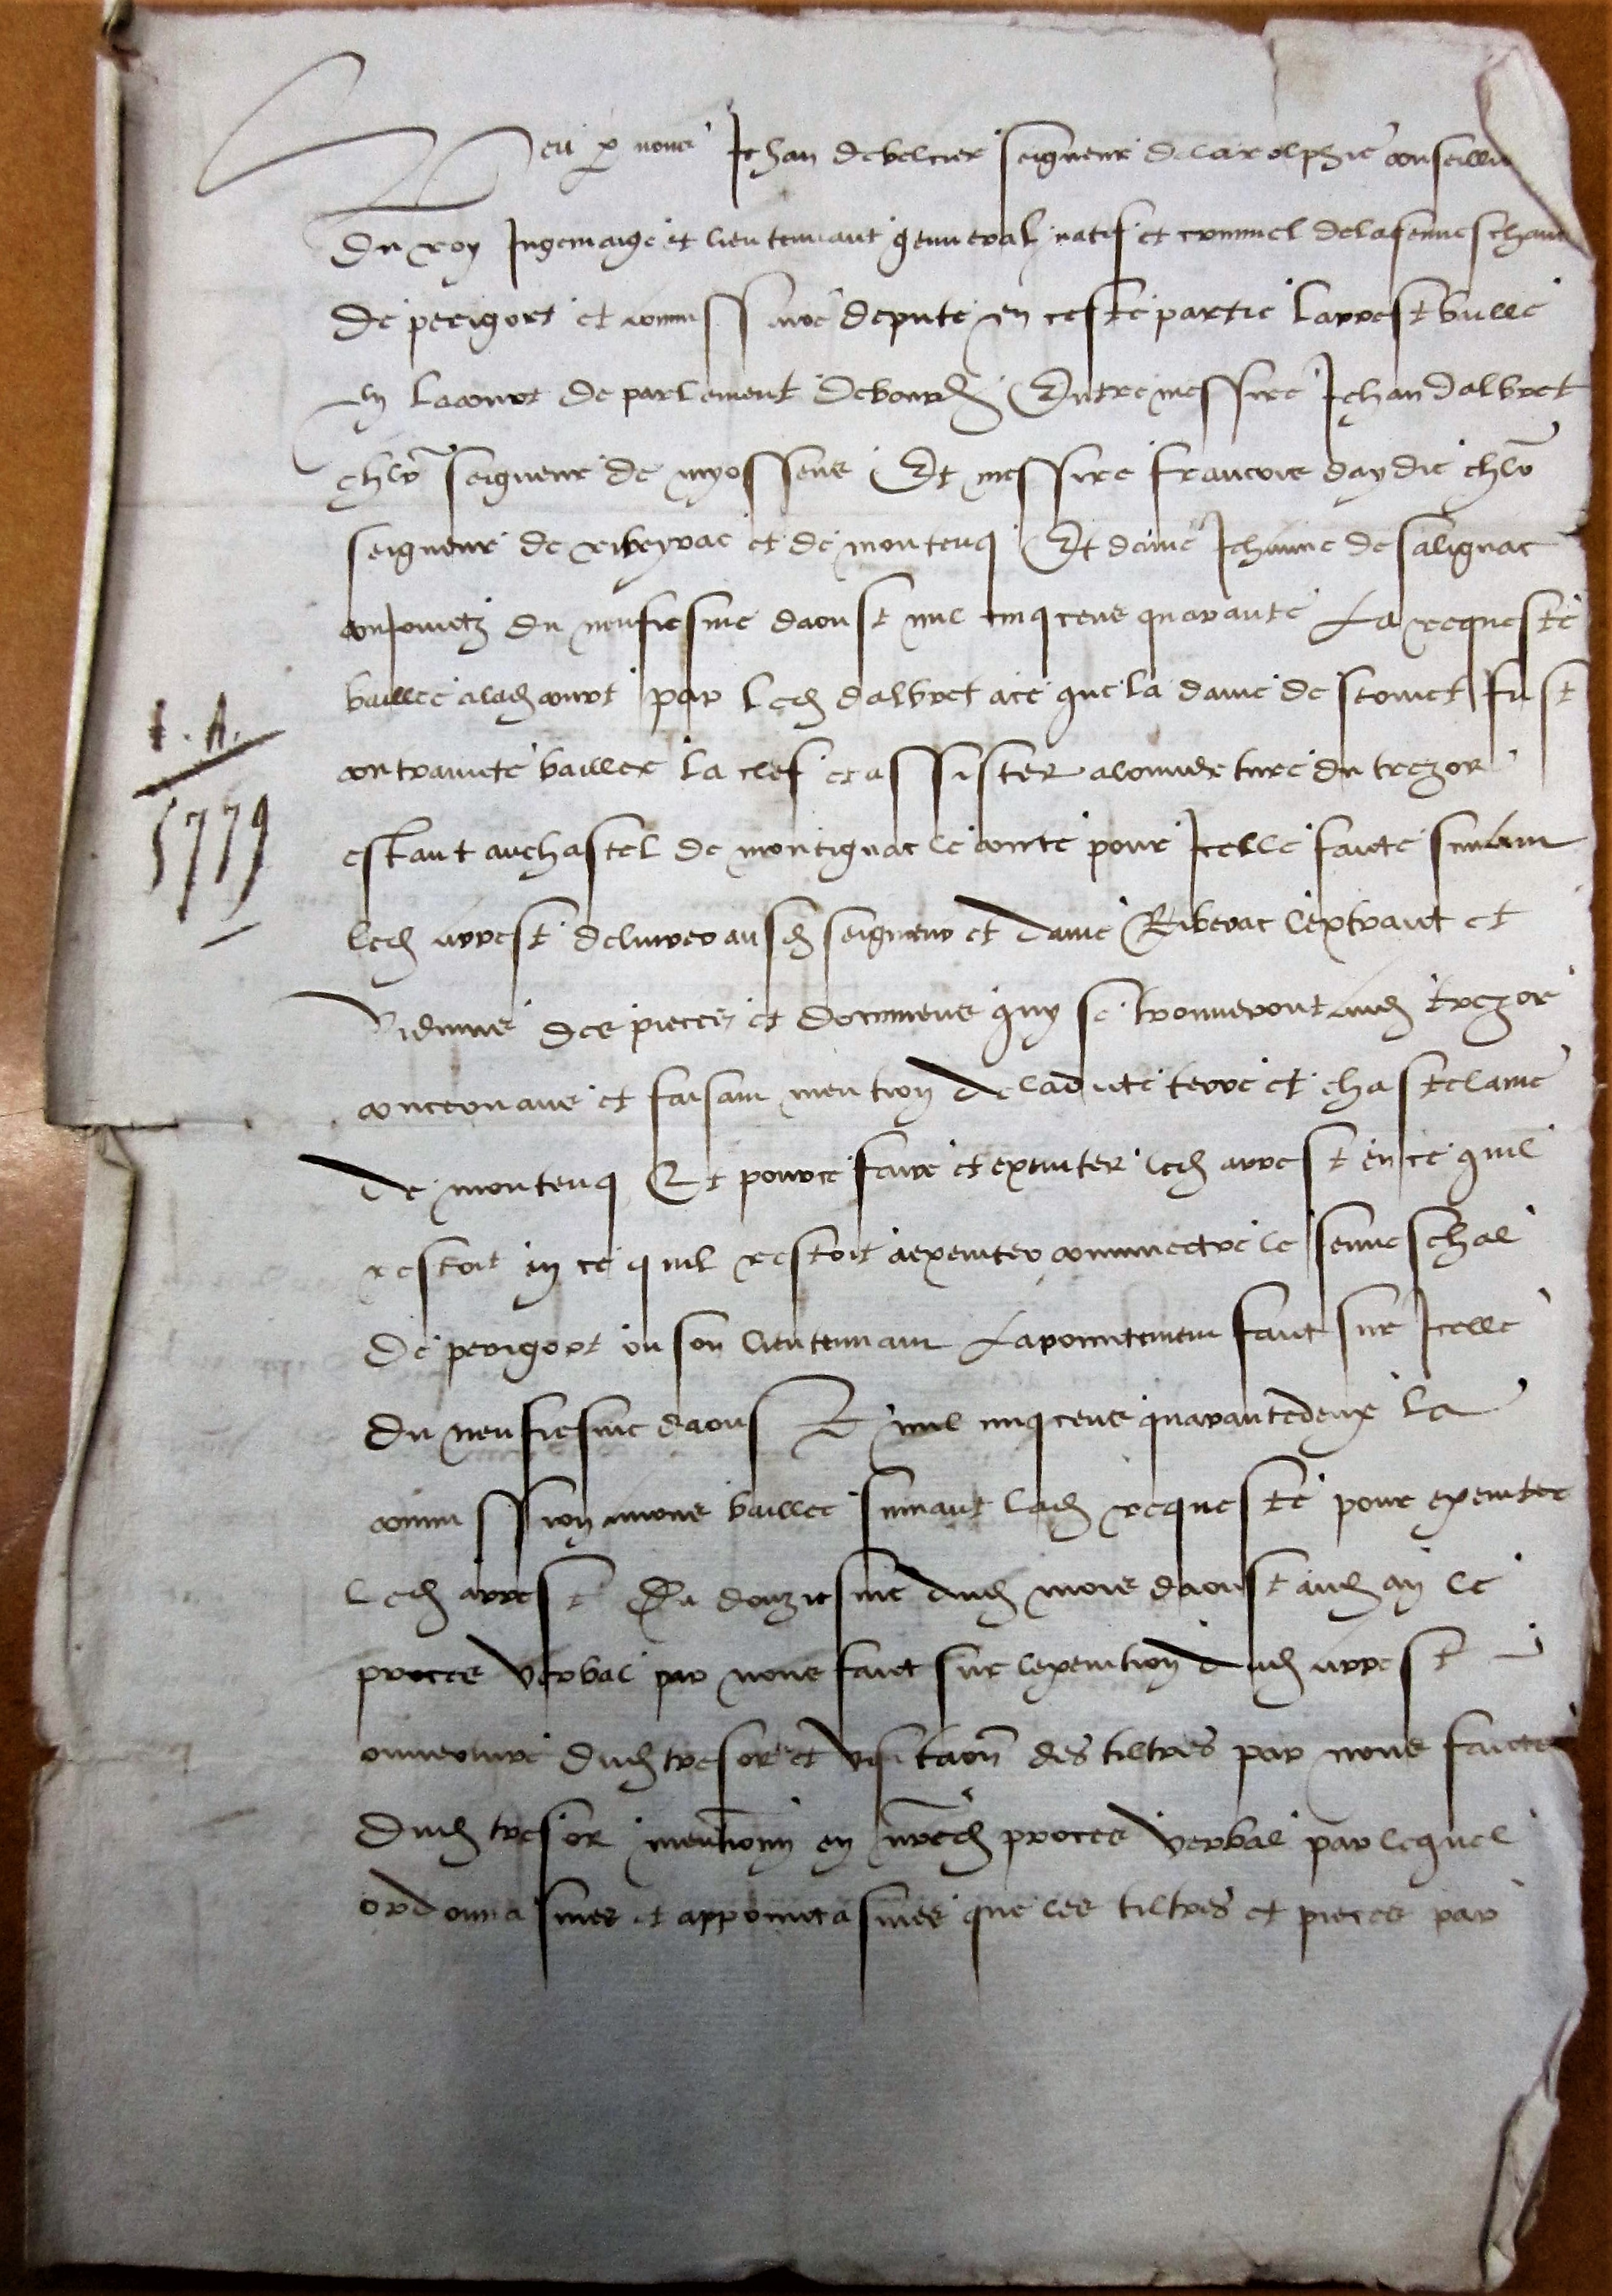 Veu p nous Jehan de belcier seigneur delarolphie conseiller
du roy Jugemaige et lieutennant genneral natif et criminel dela senneschau
de perigort et commissaire depute en ceste partie larrest baille
en lacourt de parlement debourd Entre messire Jehan dalbret
chlr seigneur de myossens Et messire francois daydie chlr
seigneur de ribeyrac et de montenq Et dame Jehanne de salignac
conjoinctz du neufiesme daoust mil cinq cens quarante La requeste
baillee alad court par led dalbret ace que la dame de stomet fust
contraincte bailler la clef et assister alouverture du trezor
estant auchastel de montignac le conte pour Icelle faicte suivant
led arrest delivrer ausd seigneur et dame Riberac lextraict et
vidimus des pieces et documens quy se trouveront aud trezor
concernans et faisant mention deladicte terre et chastelanie
de montenq Et pource faire et executer led arrest en ce quil
restoit en ce quil restoit aexecuter commectre le senneschal
de perigort ou son lieutennant Lapoinctement faict sur Icelle
du neufiesme daoust mil cinq cens quarantedeux la
commission anous baillee suivant lad requeste pour executer
led arrest Du douziesme dud mois daoust aud an le
proces verbal par nous faict sur lexecution dud arrest
ouverture dud tresor et visitaon des tiltres par nous faicte
dud tresor mentionn en nred proces verbal par lequel
ordonnasmes et appoinctasmes que les tiltres et pieces par
I. A.
5779